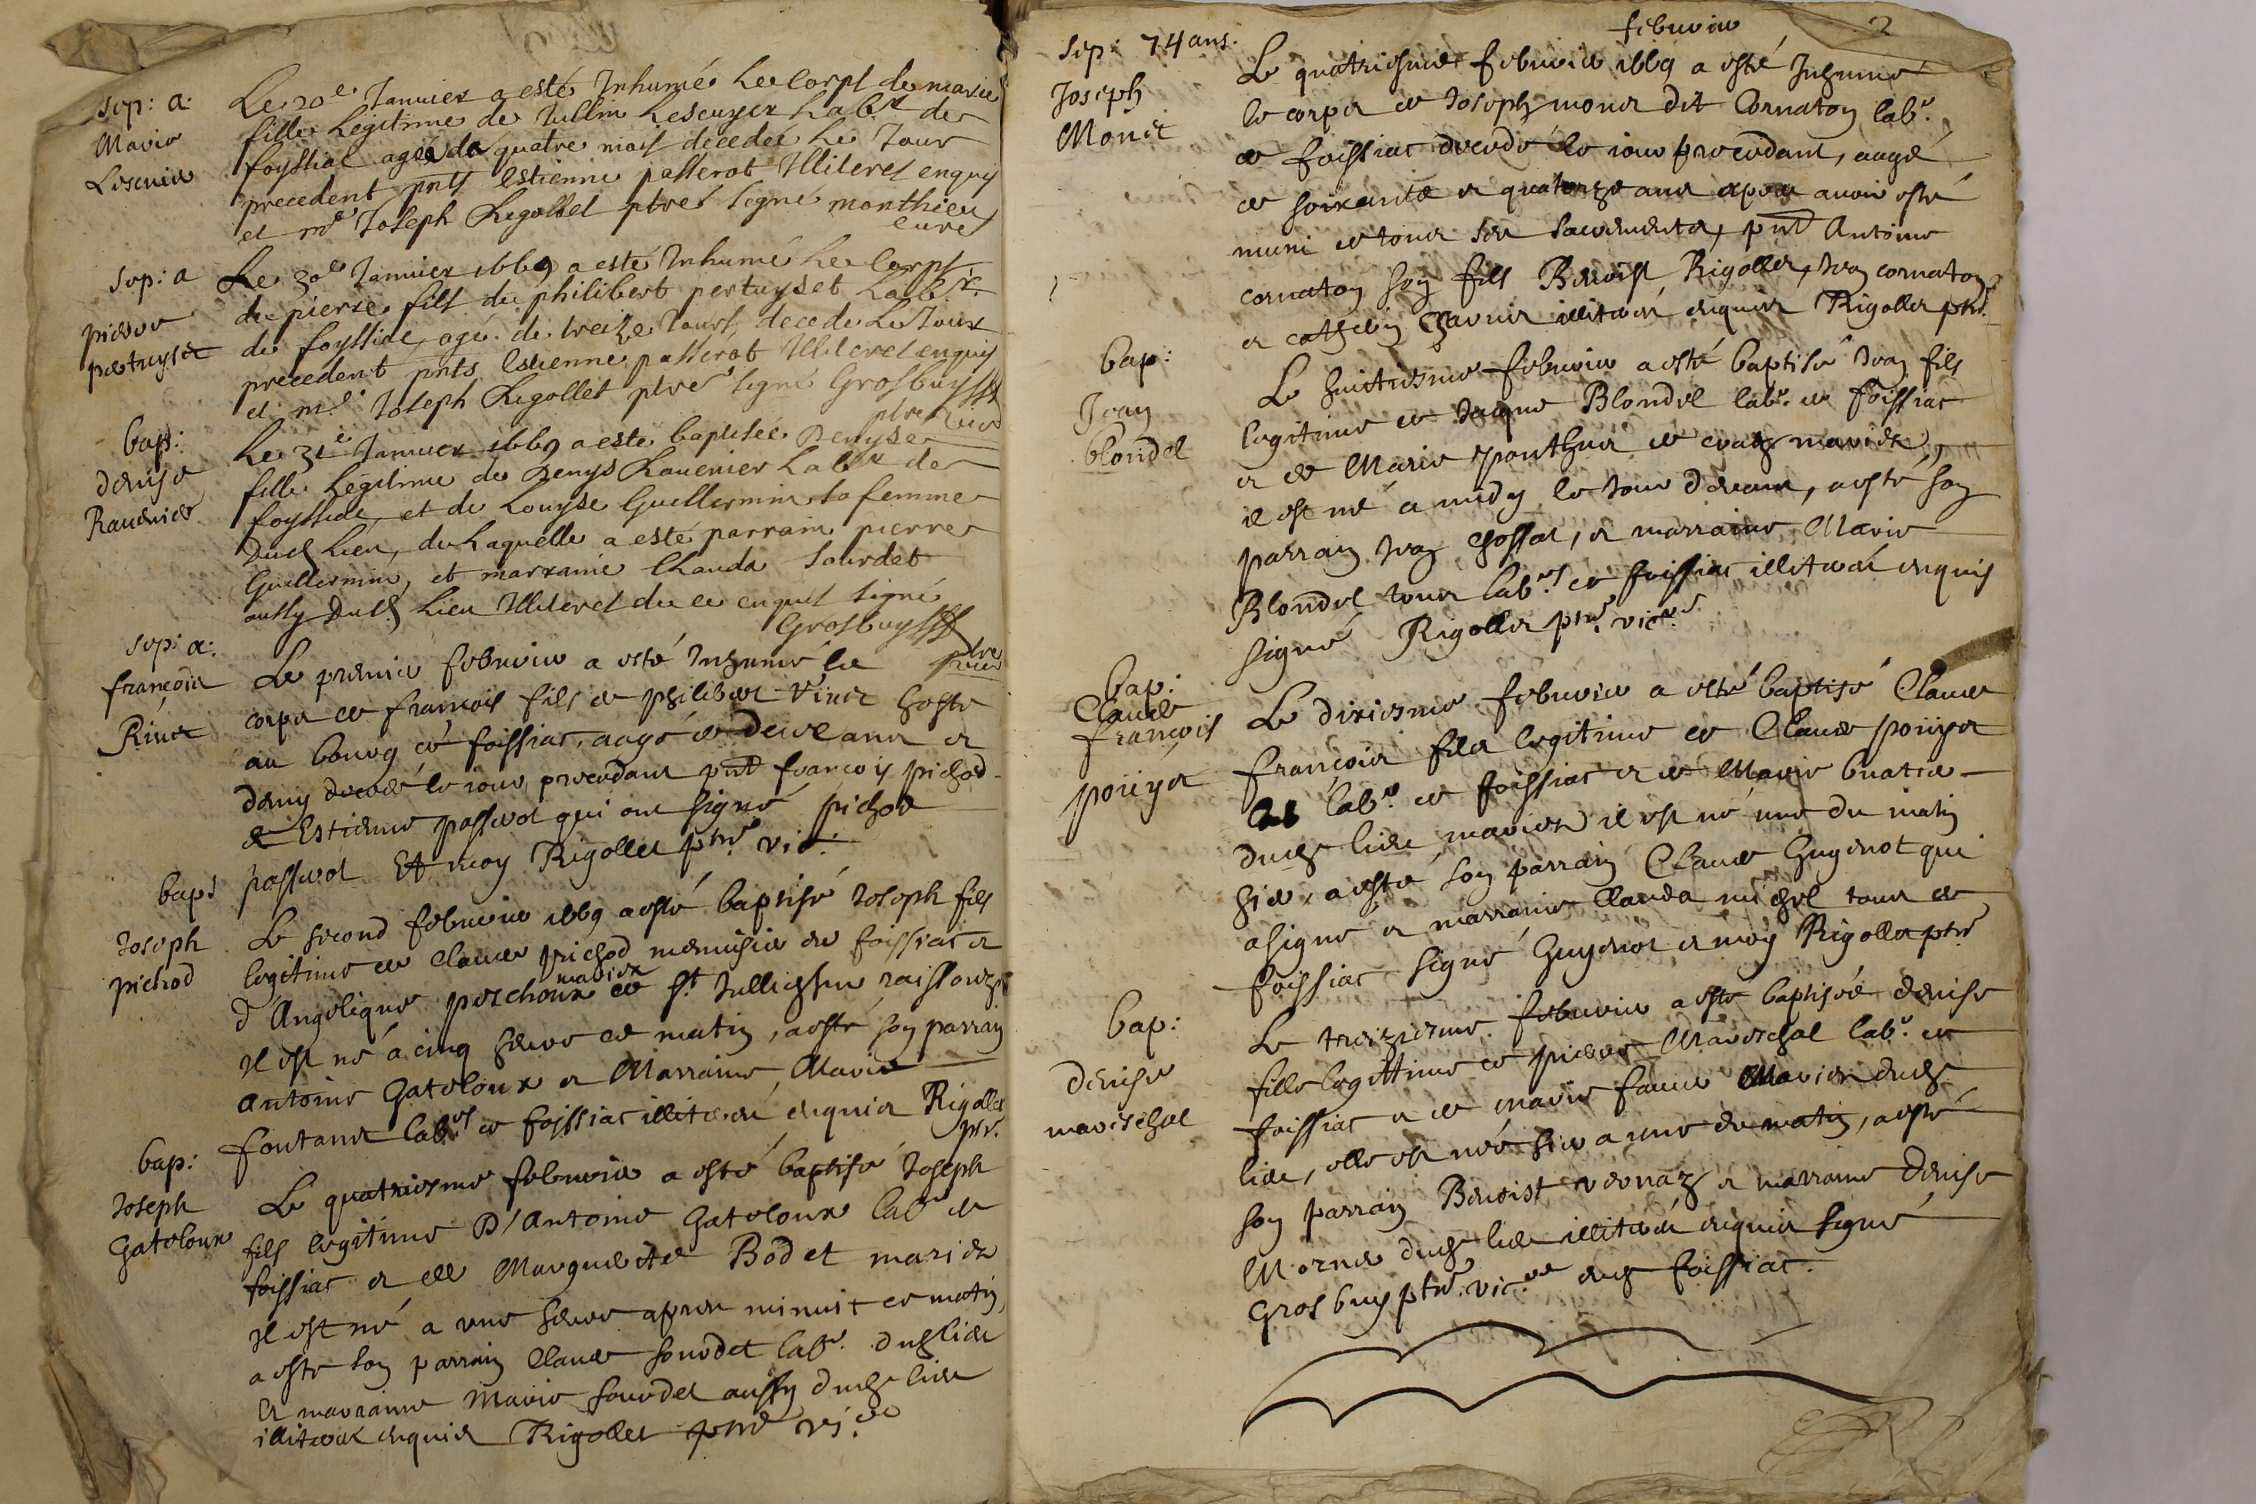 sep: a:
Marie
Lescuier
Le 20e Januier a esté Inhumé Le Corps de marie
fille Légitime de Jullin Lescuyer Labr. de
foyssiat agée de quatre mois decedée Le Jour
precedent pnts Estienne passerot Illiteres enquis
et mre Joseph Rigollet ptre signé monthieu
curé
sep: a
pierre
pertuyset
Le 30e Januier 1669 a esté Inhumé Le Corps
de pierre fils de philibert pertuyset Labr.
de foyssiat, agé de treize Jours, decede Le Jour
precedent pnts Estienne passerot Illiteres enquis
et mre Joseph Rigollet ptre signé Grosbuys
ptre vicre
bap:
denise
Rauenier
Le 31e Januier 1669 a esté baptisée Denyse
fille Légitime de Denys Rauenier Labr de
foyssiat, et de Louyse Guillermin sa femme
Dud Lieu, de Laquelle a esté parrain pierre
Guillermin, et marraine Clauda Sourdet
aussy Dud Lieu Illiteres de ce enquis signé
Grosbuys
ptre
vicre
sep: a:
françois
Riuet
Le premier febvrier a esté Inhumé le
corps de françois fils de philibert Viuet hoste
au bourg de foissiat, aagé de deux ans et
demy decedé le iour precedant pnt françois pichod
& Estienne passerot qui ont signé pichod
passerot Et moy Rigollet ptre vic.
bap:
Joseph
pichod
Le second febvrier 1669 a esté baptisé Joseph fils
legitime de Claude pichod menuisier de foissiat et
d'Angelique perchoux mariez de St Jullien sur raissouze
Il est né à cinq heures de matin, a esté son parrain
Antoine Gateloux et Marraine Marie
fontaine labrs de foissiat illiterés enquis Rigollet
ptre.
bap:
Joseph
Gateloux
Le quatriesme febvrier a esté baptisé Joseph
fils legitime D'Antoine Gateloux labr de
foissiat et de Marguerite Bodet mariez
Il est né a une heure apres minuit de matin,
a esté son parrain Claude sourdet labr. dud lieu
et marraine Marie sourdet aussy dud lieu
illiteres enquis Rigollet ptre vic.
febvrier
2
sep: 74 ans.
Joseph
Monet
Le quatriesme febvrier 1669 a esté Inhumé
le corps de Joseph monet dit Cornaton labr.
de foissiat decedé le iour precedant, aagé
de soixante et quatorze ans apres auoir esté
muni de tous ses sacrements, pnt Antoine
cornaton son fils Benoist Rigollet, Jean cornaton
et cathelin illiterés enquis Rigollet ptre.
bap:
Jean
blondel
Le huictiesme febvrier a esté baptisé Jean fils
legitime de Jaque Blondel labr. de foissiat
et de Marie ponthus de mariez,
il est né a midy le Jour deuant, a esté son
parrain Jean chossat, et marraine Marie
Blondel tous labrs de foissiat illiterés enquis
signé Rigollet ptre. vicre
bap:
Claude
françois
poüyat
Le dixiesme febvrier a esté baptisé Claude
françois fils legitime de Claude poüyat
labr. de foissiat et de Marie buatier
dud lieu mariez il est né une du matin
hier, a esté son parrain Claude Guyenot qui
a signé et marraine Clauda michel tous de
foissiat signé Guyenot et moy Rigollet ptre
bap:
denise
mareschal
Le treiziesme febvrier a esté baptisée denise
fille legittime de pierre Mareschal labr. de
foissiat et de marie faure Mariez dud
lieu, elle est née hier a une de matin, a esté
son parrain Benoist et marraine denise
Morne dud lieu illiterés enquis signé
Gros buy ptre. vicre dud foissiat.